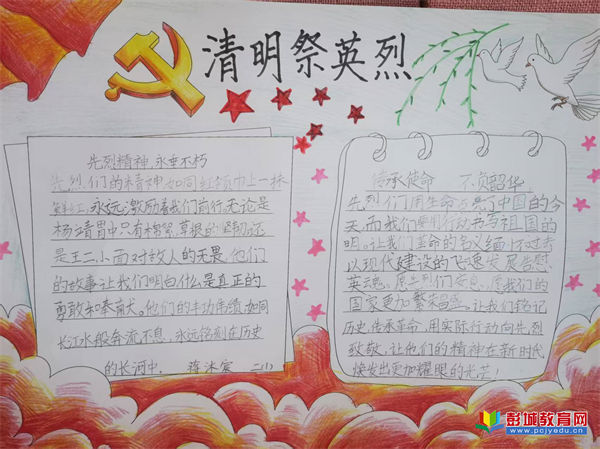 清明祭英烈
先烈精神,永垂不朽
先烈们的精神如同红领巾上一抹
永远激励着我们前行,无论是
杨靖宇胃中只有棉絮草根的坚韧还
是王二小面对敌人的无畏,他们
的故事让我们明白什么是真正的
勇敢和奉献。他们的丰功伟绩如同
长江水般奔流不息,永远铭刻在历史
的长河中。
传承使命 不负韶华
先烈们用生命点亮了中国的今
天,而我们要用行动书写祖国的
明。让我们革命的名义缅怀过去
以现代建设的飞速发展告慰
英魂。愿先烈们安息,愿我们的
国家更加繁荣昌盛。让我们铭记
历史传承革命,用实际行动向先烈
致敬,让他们的精神在新时代
焕发出更加耀眼的光芒!
彭城教育网
www.pcjyedu.cn